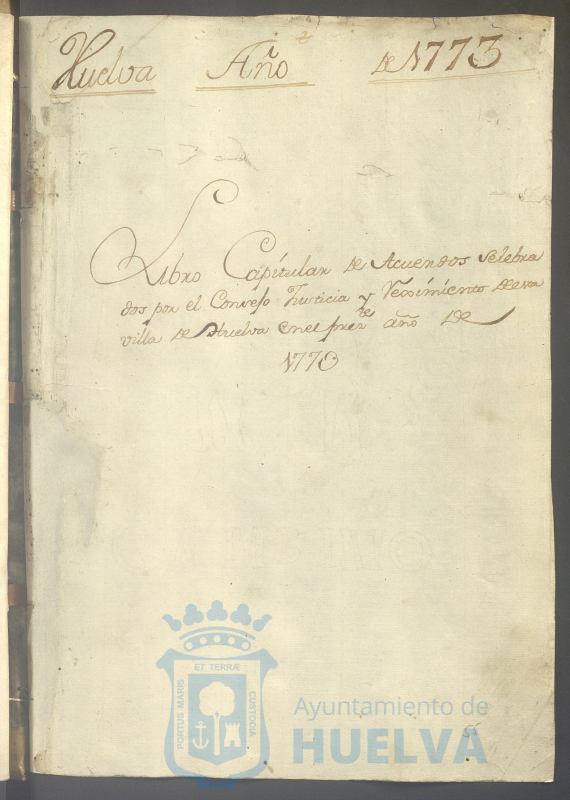 Huelva Año de 1773
Libro Capitular de Acuerdos Selebra
dos por el Consejo Justicia y Reximiento de esta
villa de Huelva en el preste año de
1773
PORTUS MARIS ET TERRÆ CUSTODIA
Ayuntamiento de
HUELVA